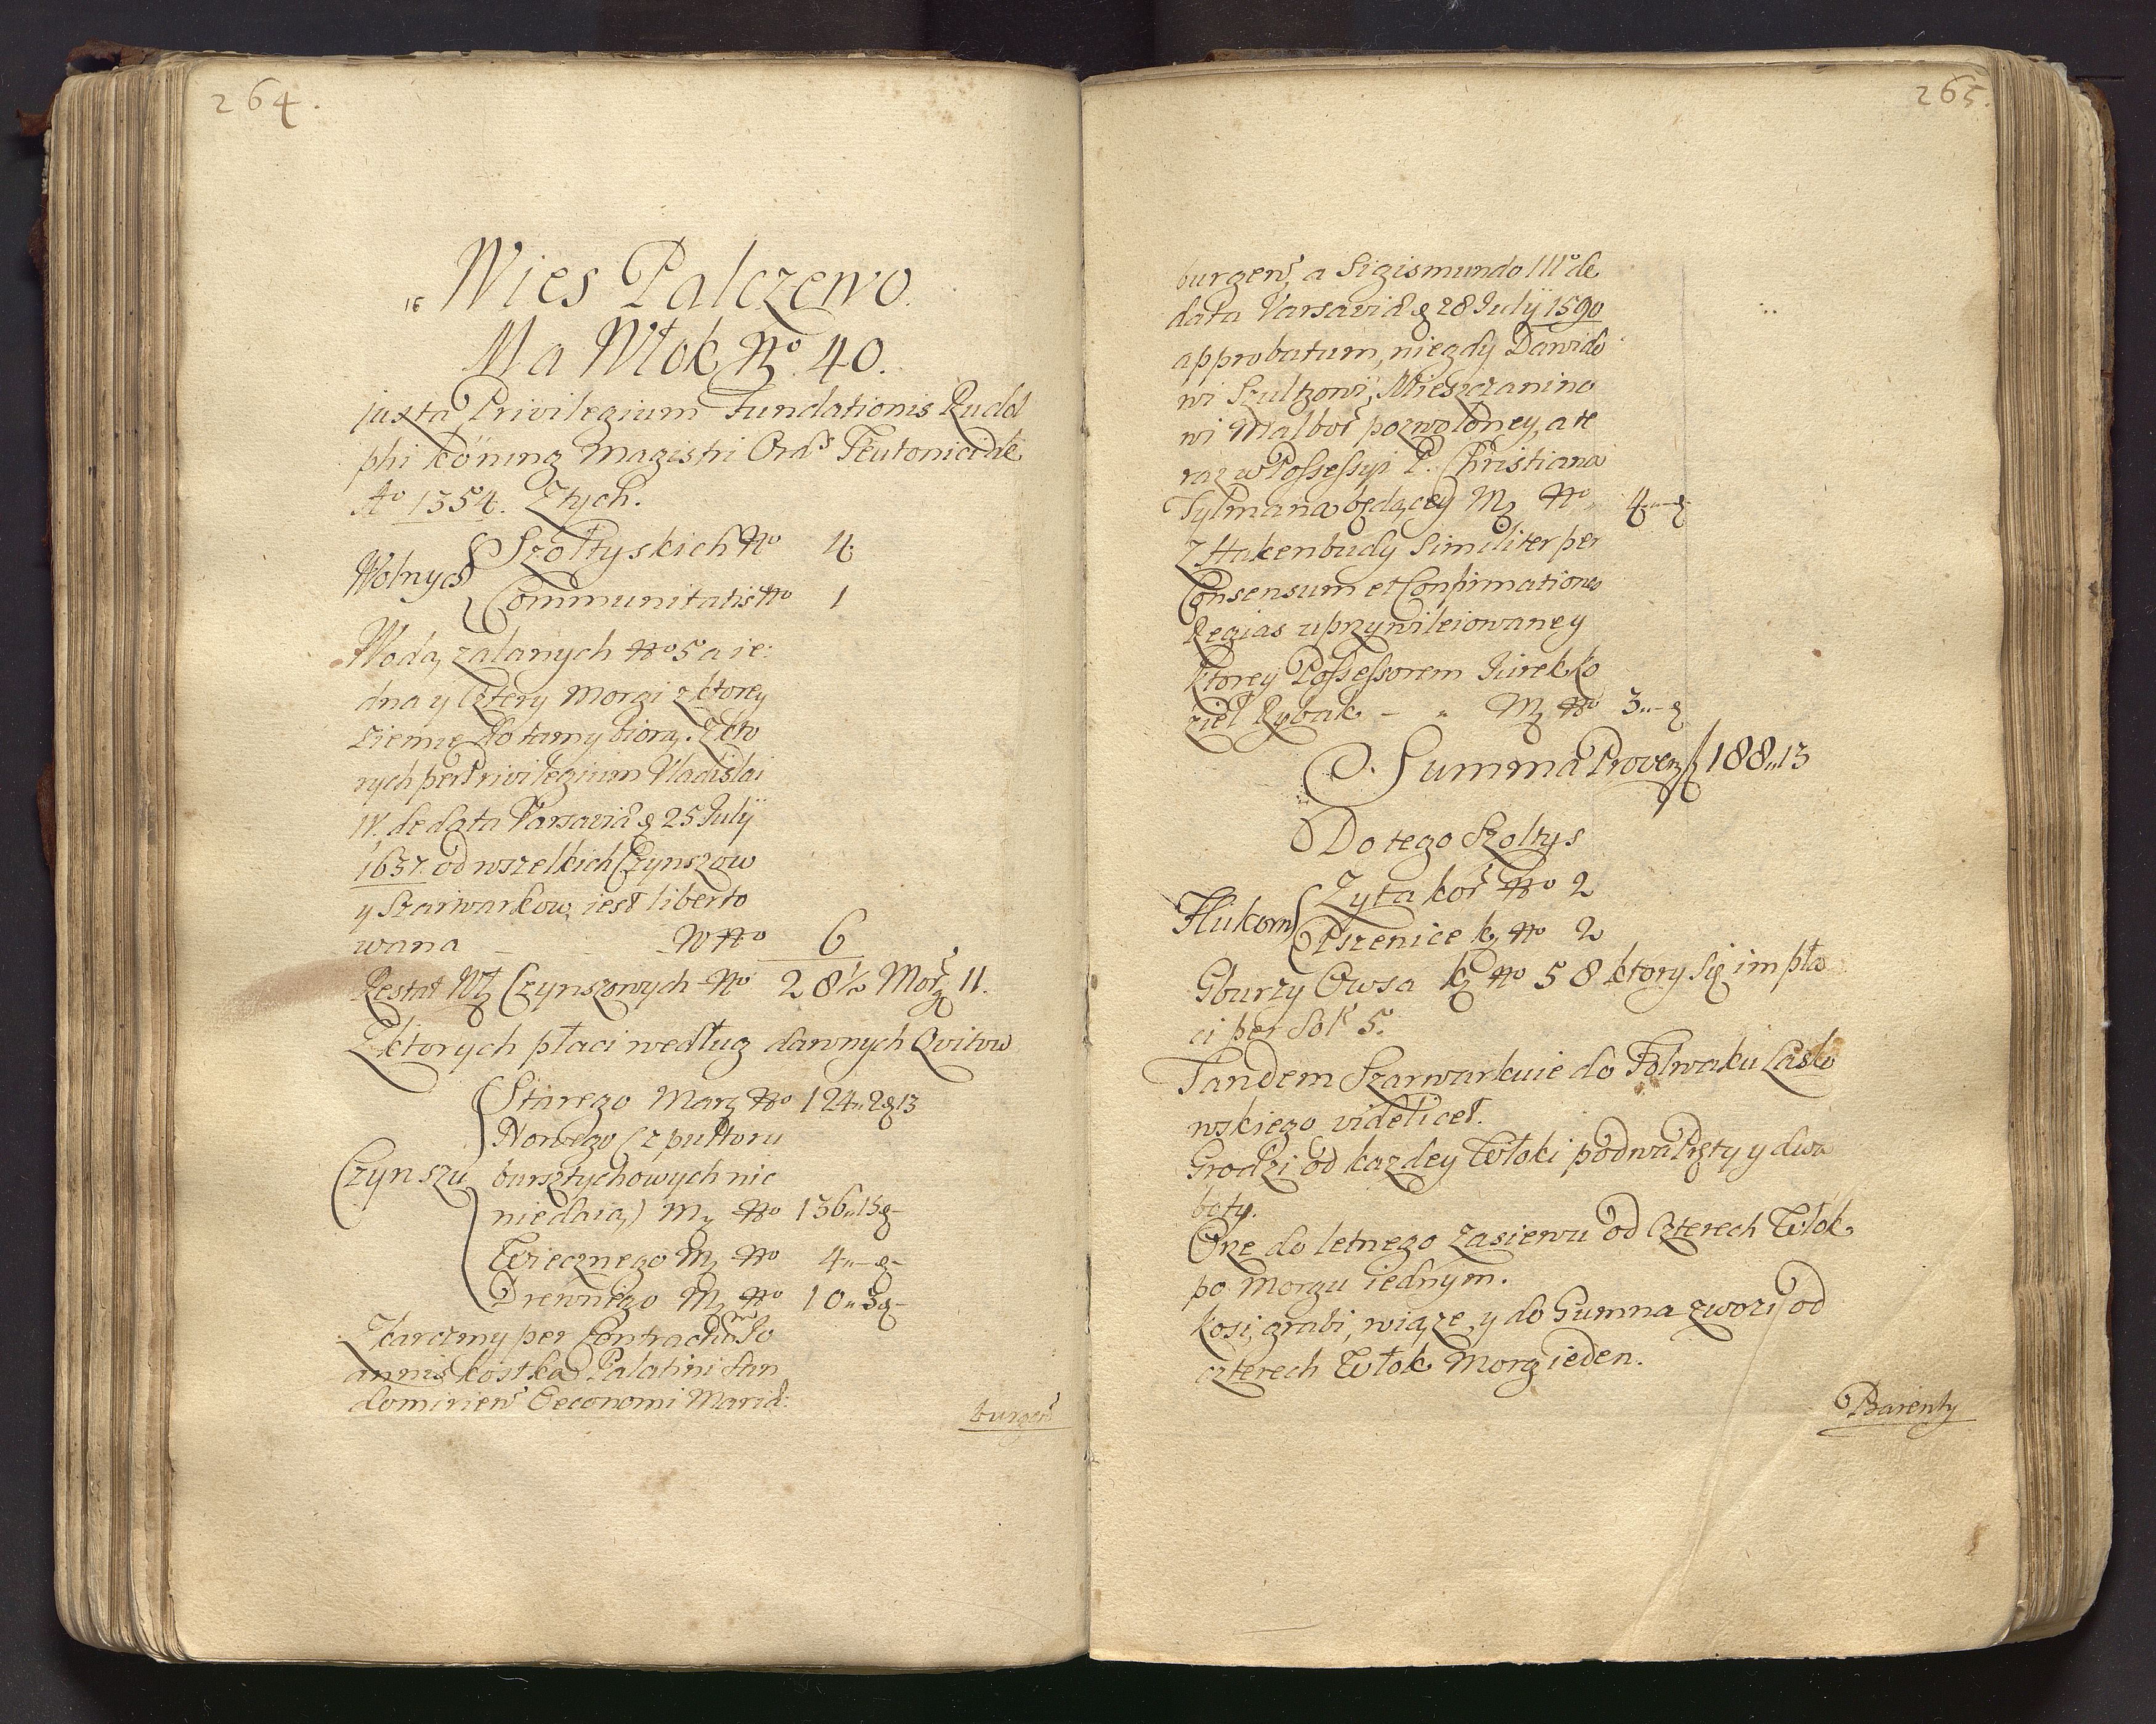 264.
16 Wies Palczewo.
Ma Włok No. 40.
juxta Privilegium Fundationis Rudol
phi Köning Magistri Ords Teutonici de
Ao 1354. Ztych.
Wolnych
Szołtyskich No 4
Communitatis No 1
Wodą zalanych No 5 a ie:
dna y Cztery Morgi z ktorey
ziemię do tamy biorą. Zkto
rych per Privilegium Vladislai
IV. de data Varsaviæ d 25 July
1637. od wszelkich Czynszow
y Szarwarkow iest liberto
wana - W No 6
Restat Wł Czynszowych No 28½ Morg 11.
Zktorych płaci według dawnych Qvitow
Czynszu
Starego Marg No 124„2g13
Nowego (z pułtoru
bursztychowych nic
niedaią) M No 136„15g-
Wiecznego M No 4„-g-
Drewnego M No 10„3g-
Zkarczmy per Contractum Jo
annis Kostka Palatini San
domirień Oeconomi Mariæ:
burgeń
265.
burgeń, a Sigismundo IIIo de
data Varsaviæ d 28 July 1590
approbatum, niegdy Dawido
wi Szultzowi, Mieszczanino
wi Malboř pozwoloney, a te
raz w Possessyi P. Christiana
Tylmana będącey M No 4„-g-
Z Hakenbudy Similiter per
Consensum et Confirmationes
Regias uprzywileiowaney
ktorey Possessorem Jurek Ko
zieł Rybak - „ M No 3„-g
Summa Proven f 188„13
Do tego Szołtys
Hukorn
Zyta koř No 2
Pszenice k No 2
Gburzy Owsa k No 58 ktory się im pła
ci per Sol 5.
Tandem Szarwarkuie do Folwaku Lasko
wskiego videlicet.
Grodzi od kazdey Włoki po dwa Pręty y dwa
boty.
Orze do letnego zasiewu od Czterech Włok
po Morgu iednym.
Kosi, grabi, wiąze, y do Gumna zwozi od
czterech Włok Morg ieden.
Barenty